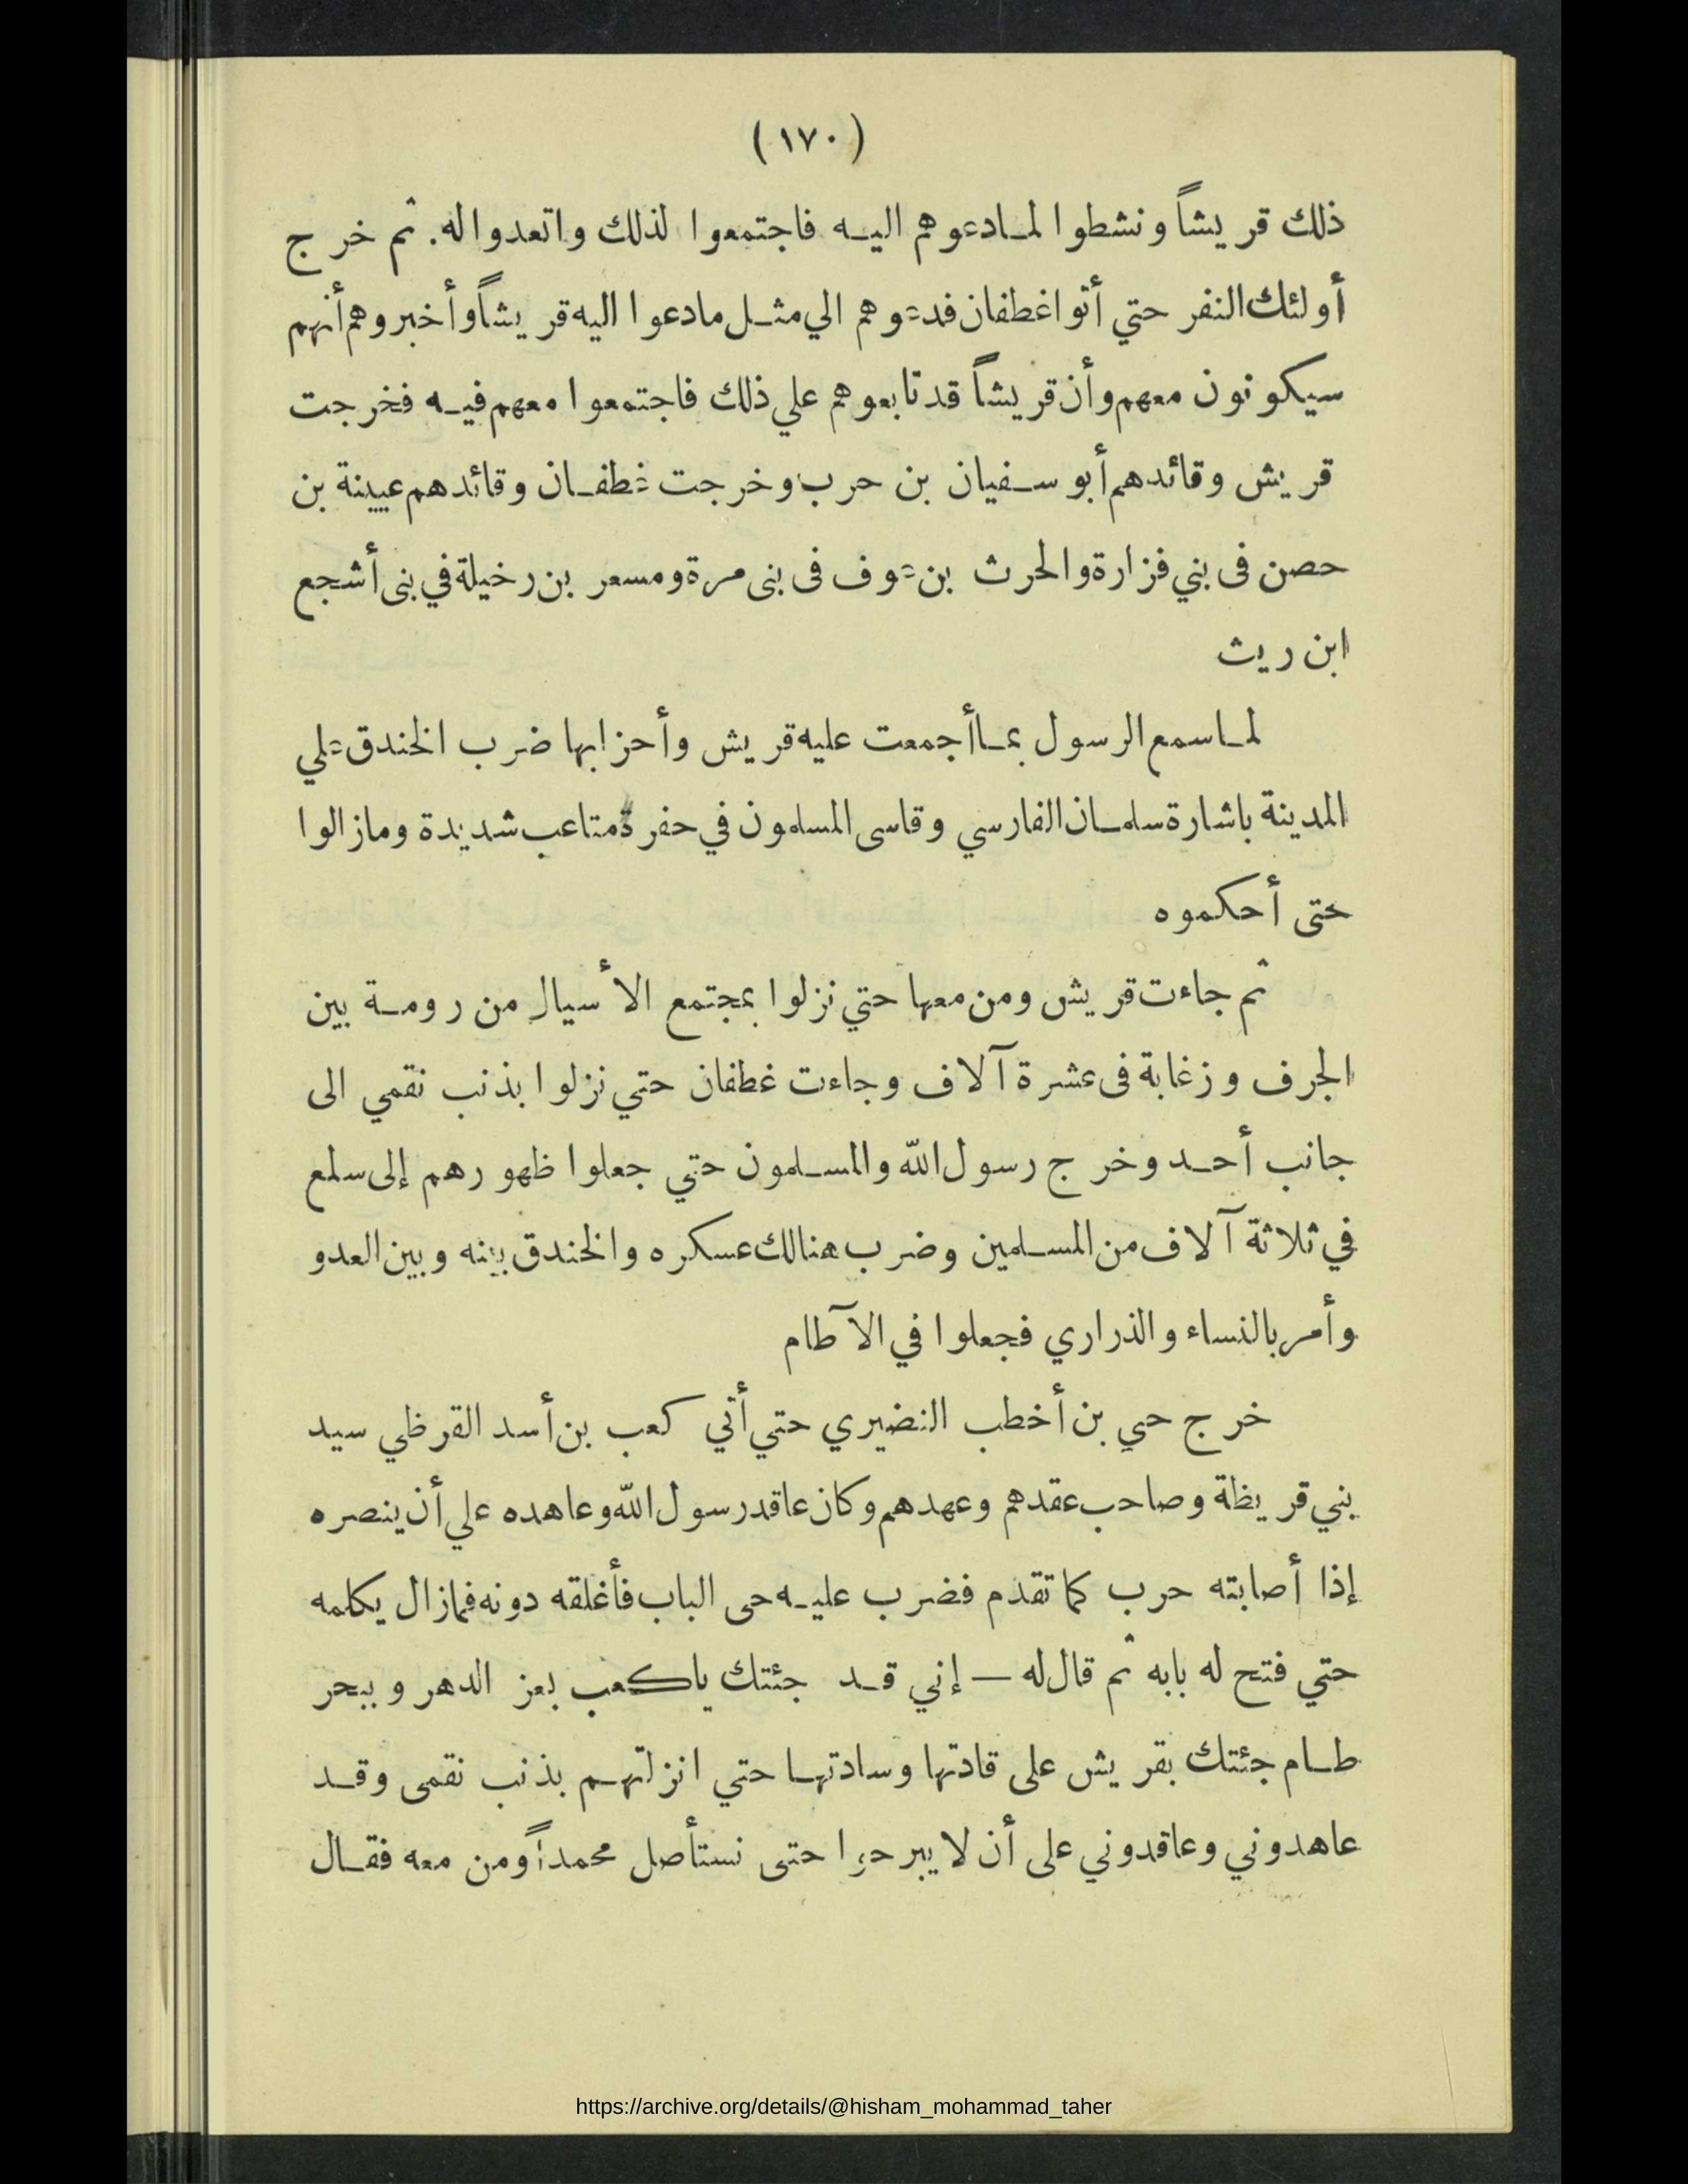 (١٧٠)
ذلك قريشاً ونشطوا لمادعوهم اليه فاجتمعوا لذلك واتعدوا له. ثم خرج
أولئك النفر حتي أتوا غطفان فدعوهم الي مثل مادعوا اليه قريشاً وأخبروهم أنهم
سيكونون معهم وأن قريشاً قد تابعوهم علي ذلك فاجتمعوا معهم فيه فخرجت
قريش وقائدهم أبو سفيان بن حرب وخرجت غطفان وقائدهم عيينة بن
حصن فى بني فزارة والحرث بن عوف فى بنى مرة ومسعر بن رخيلة في بنى أشجع
ابن ريث
لما سمع الرسول بما أجمعت عليه قريش وأحزابها ضرب الخندق علي
المدينة باشارة سلمان الفارسي وقاسى المسلمون في حفرة متاعب شديدة ومازالوا
حتى أحكموه
ثم جاءت قريش ومن معها حتي نزلوا بمجتمع الأسيال من رومة بين
الجرف وزغابة فى عشرة آلاف وجاءت غطفان حتي نزلوا بذنب نقمي الى
جانب أحد وخرج رسول الله والمسلمون حتي جعلوا ظهورهم إلى سلع
في ثلاثة آلاف من المسلمين وضرب هنالك عسكره والخندق بينه وبين العدو
وأمر بالنساء والذراري فجعلوا في الآطام
خرج حي بن أخطب النضيري حتي أتي كعب بن أسد القرظي سيد
بني قريظة وصاحب عقدهم وعهدهم وكان عاقد رسول الله وعاهده علي أن ينصره
إذا أصابته حرب كما تقدم فضرب عليه حى الباب فأغلقه دونه فمازال يكلمه
حتي فتح له بابه ثم قال له — إني قد جئتك ياكعب بعز الدهر وببحر
طام جئتك بقريش على قادتها وسادتها حتي انزلتهم بذنب نقمى وقد
عاهدوني وعاقدوني على أن لا يبرحوا حتى نستأصل محمداً ومن معه فقال
https://archive.org/details/@hisham_mohammad_taher